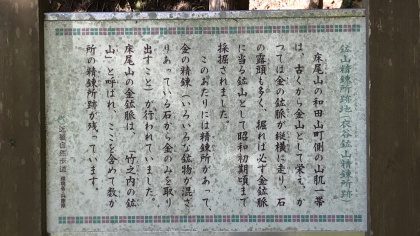 鉱山精錬所跡地・衣谷鉱山精錬所跡
床尾山の和田山町側の山肌一帯
は、古くから金山として栄え、か
つては金の鉱脈が縦横に走り、石
の露頭も多く、掘れば必ず金鉱脈
に当る鉱山として昭和初期頃まで
採掘されました。
このあたりには精錬所があって、
金の精錬（いろいろな鉱物が混ざ
りあっている石から金のみを取り
出すこと）が行われていました。
床尾山の金鉱脈は、「竹之内の鉱
山」と呼ばれ、ここを含めて数か
所の精錬所跡が残っています。
近畿自然歩道
環境省・兵庫県